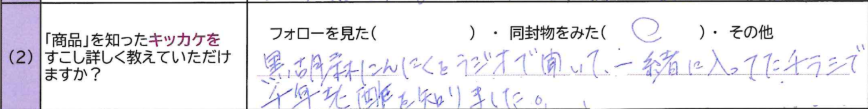 (2)
「商品」を知ったキッカケを
すこし詳しく教えていただけ
ますか？
フォローを見た(　　　)・同封物をみた(　○　)・その他
黒胡麻にんにくをラジオで聞いて、一緒に入ってたチラシで
を知りました。